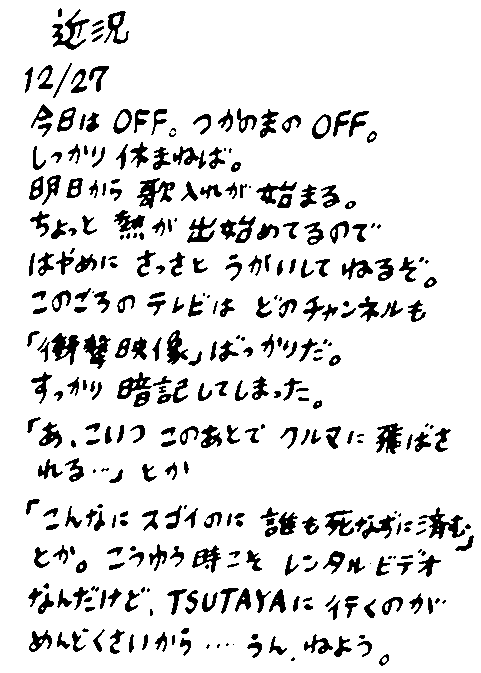 近況
12/27
今日は OFF。つかのまの OFF。
しっかり 休まねば。
明日から 歌入れが 始まる。
ちょっと 熱が 出始めてるので
はやめに さっさと うがいして ねるぞ。
このごろの テレビは どのチャンネルも
「衝撃映像」ばっかりだ。
すっかり 暗記してしまった。
「あ、こいつ このあとで クルマに 飛ばさ
れる…」とか
「こんなに スゴイのに 誰も死なずに済む」
とか。こうゆう時こそ レンタルビデオ
なんだけど、TSUTAYAに 行くのが
めんどくさいから … うん、ねよう。